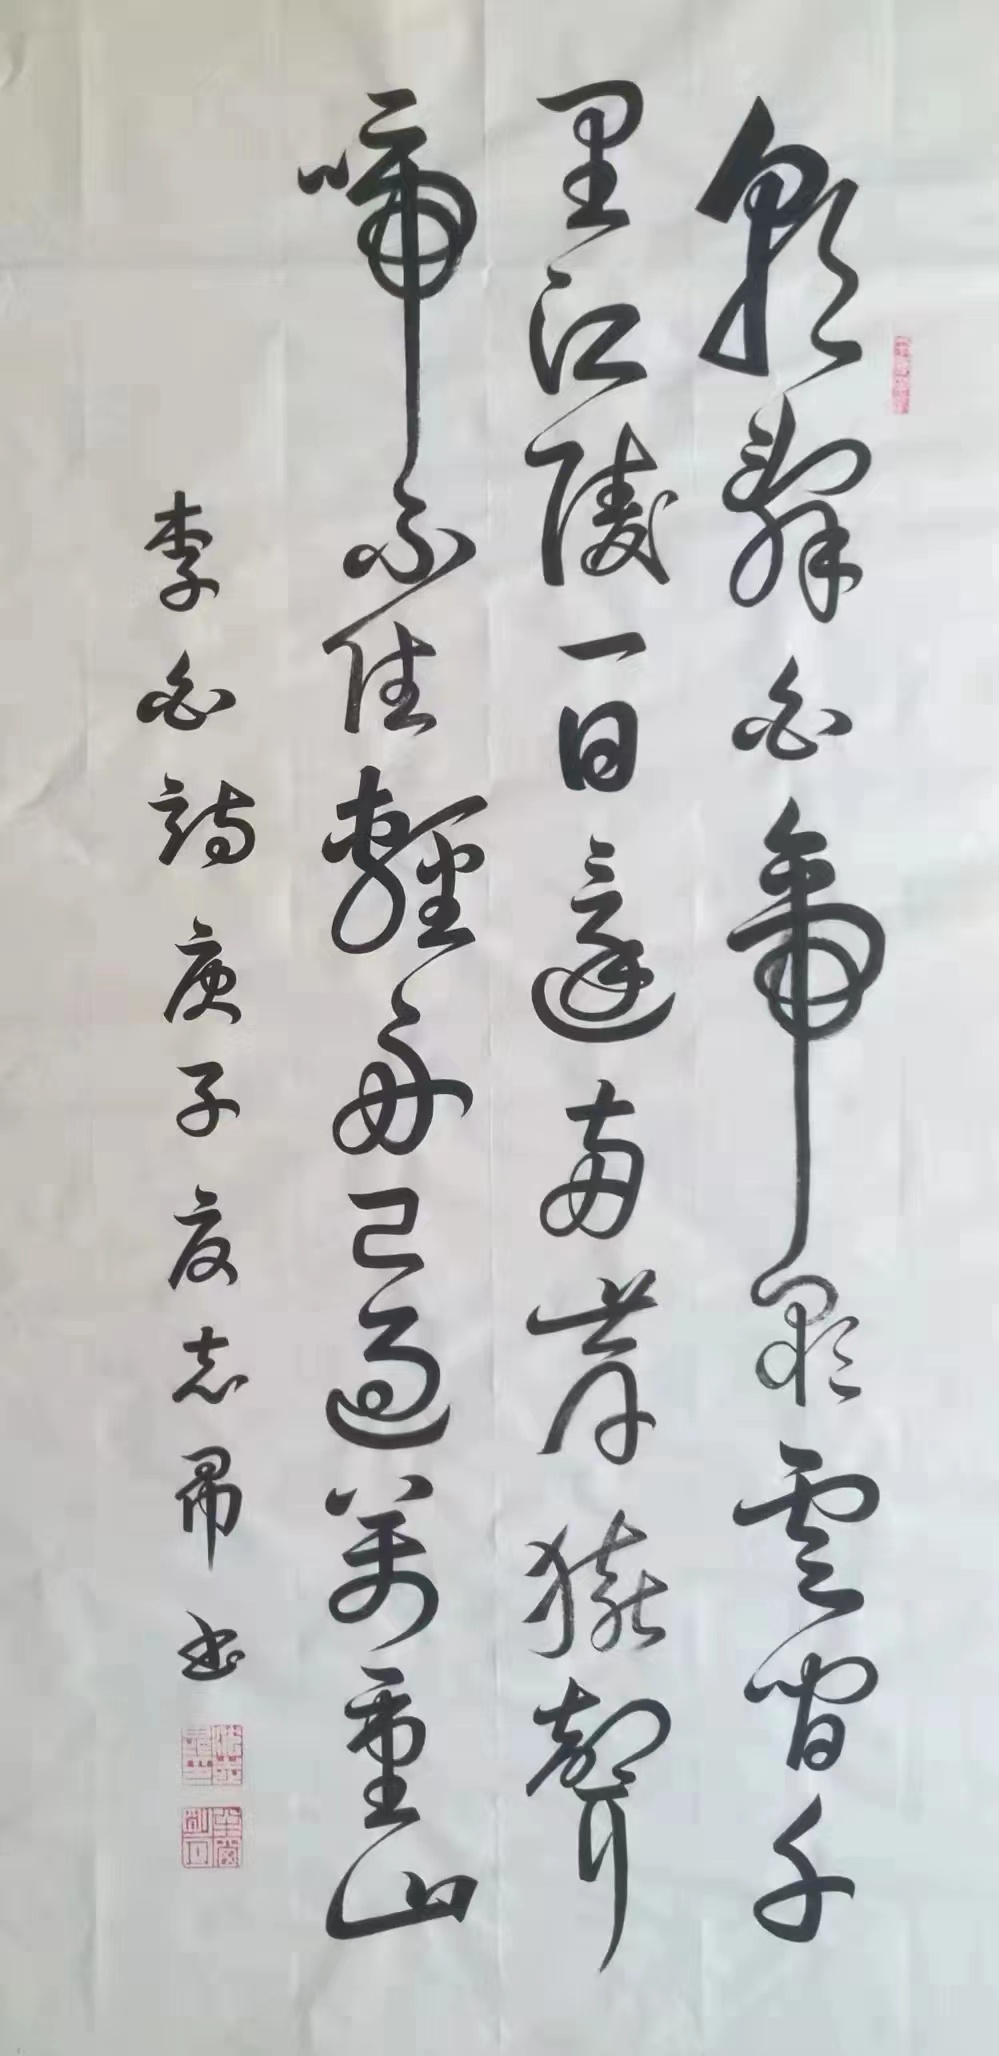 朝辞白帝彩雲間千
里江陵一日還两岸猿聲
啼不住輕舟已過萬重山
李白詩庚子夏志 書